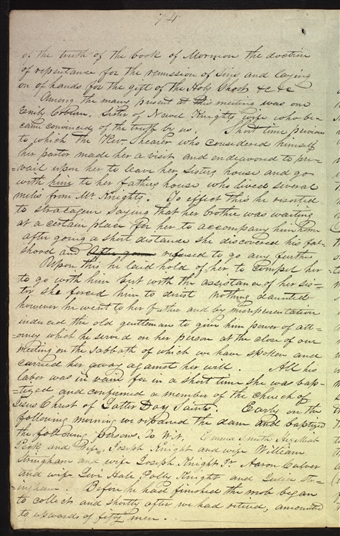 74
of the truth of the book of Mormon the doctrine
of repentance for the remission of Sins and laying
on of hands for the gift of the Holy Ghost &c &c
Among the many present at this meeting was one
Emily Coburn, Sister of Newel Knights wife who be-
came convinced of the truth by us, Short time previous
to which the Rev. Shearer who considered himself
her pastor made her a visit and endeavored to pre-
vail upon her to leave her Sisters house and go
with him to her fathers house who lived several
miles from Mr Knights. To effect this he resorted
to stratagem saying that her brother was waiting
at a certain place for her to accompany him home
after going a short distance she discovered his fal-
shood and refused to go any further
Upon this he laid hold of her to compel her
to go with him but with the assistance of her sis-
ter she forced him to desist nothing daunted
however he went to her father and by misrepresentation
induced the old gentleman to give him power of att-
orney which he served on her person at the close of our
meeting on the Sabbath of which we have spoken and
carried her away against her will. All his
labor was in vain for in a short time she was bap-
tized and confirmed a member of the Church of
Jesus Christ of Latter Day Saints. Early on the
following morning we repaired the dam and baptized
the following Persons To Wit. Emma Smith
Peck and Wife, Joseph Knight and wife William
Stringham and wife Joseph Knight Jr Aaron Culver
and wife Levi Hale, Polly Knights and Julia St-
ringham. Before he had finished the mob began
to collect and shortly after we had retired, amounted
to upwards of fifty men.